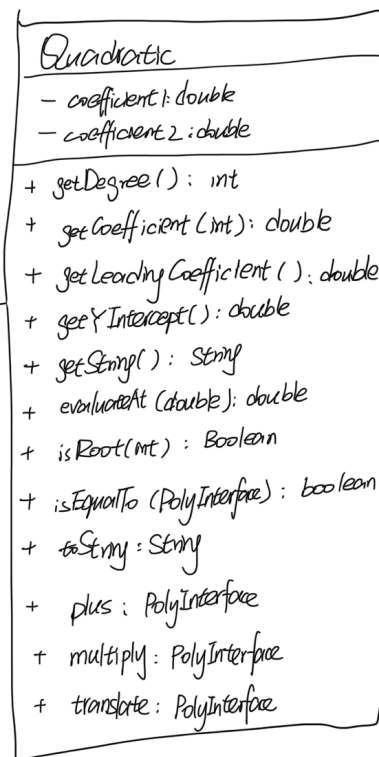 Quadratic
- coefficient1: double
- coefficient2: double
+ getDegree(): int
+ getCoefficient(int): double
+ getLeadingCoefficient(): double
+ getYIntercept(): double
+ getString(): String
+ evaluateAt(double): double
+ isRoot(int): Boolean
+ isEqualTo(PolyInterface): boolean
+ toString: String
+ plus: PolyInterface
+ multiply: PolyInterface
+ translate: PolyInterface